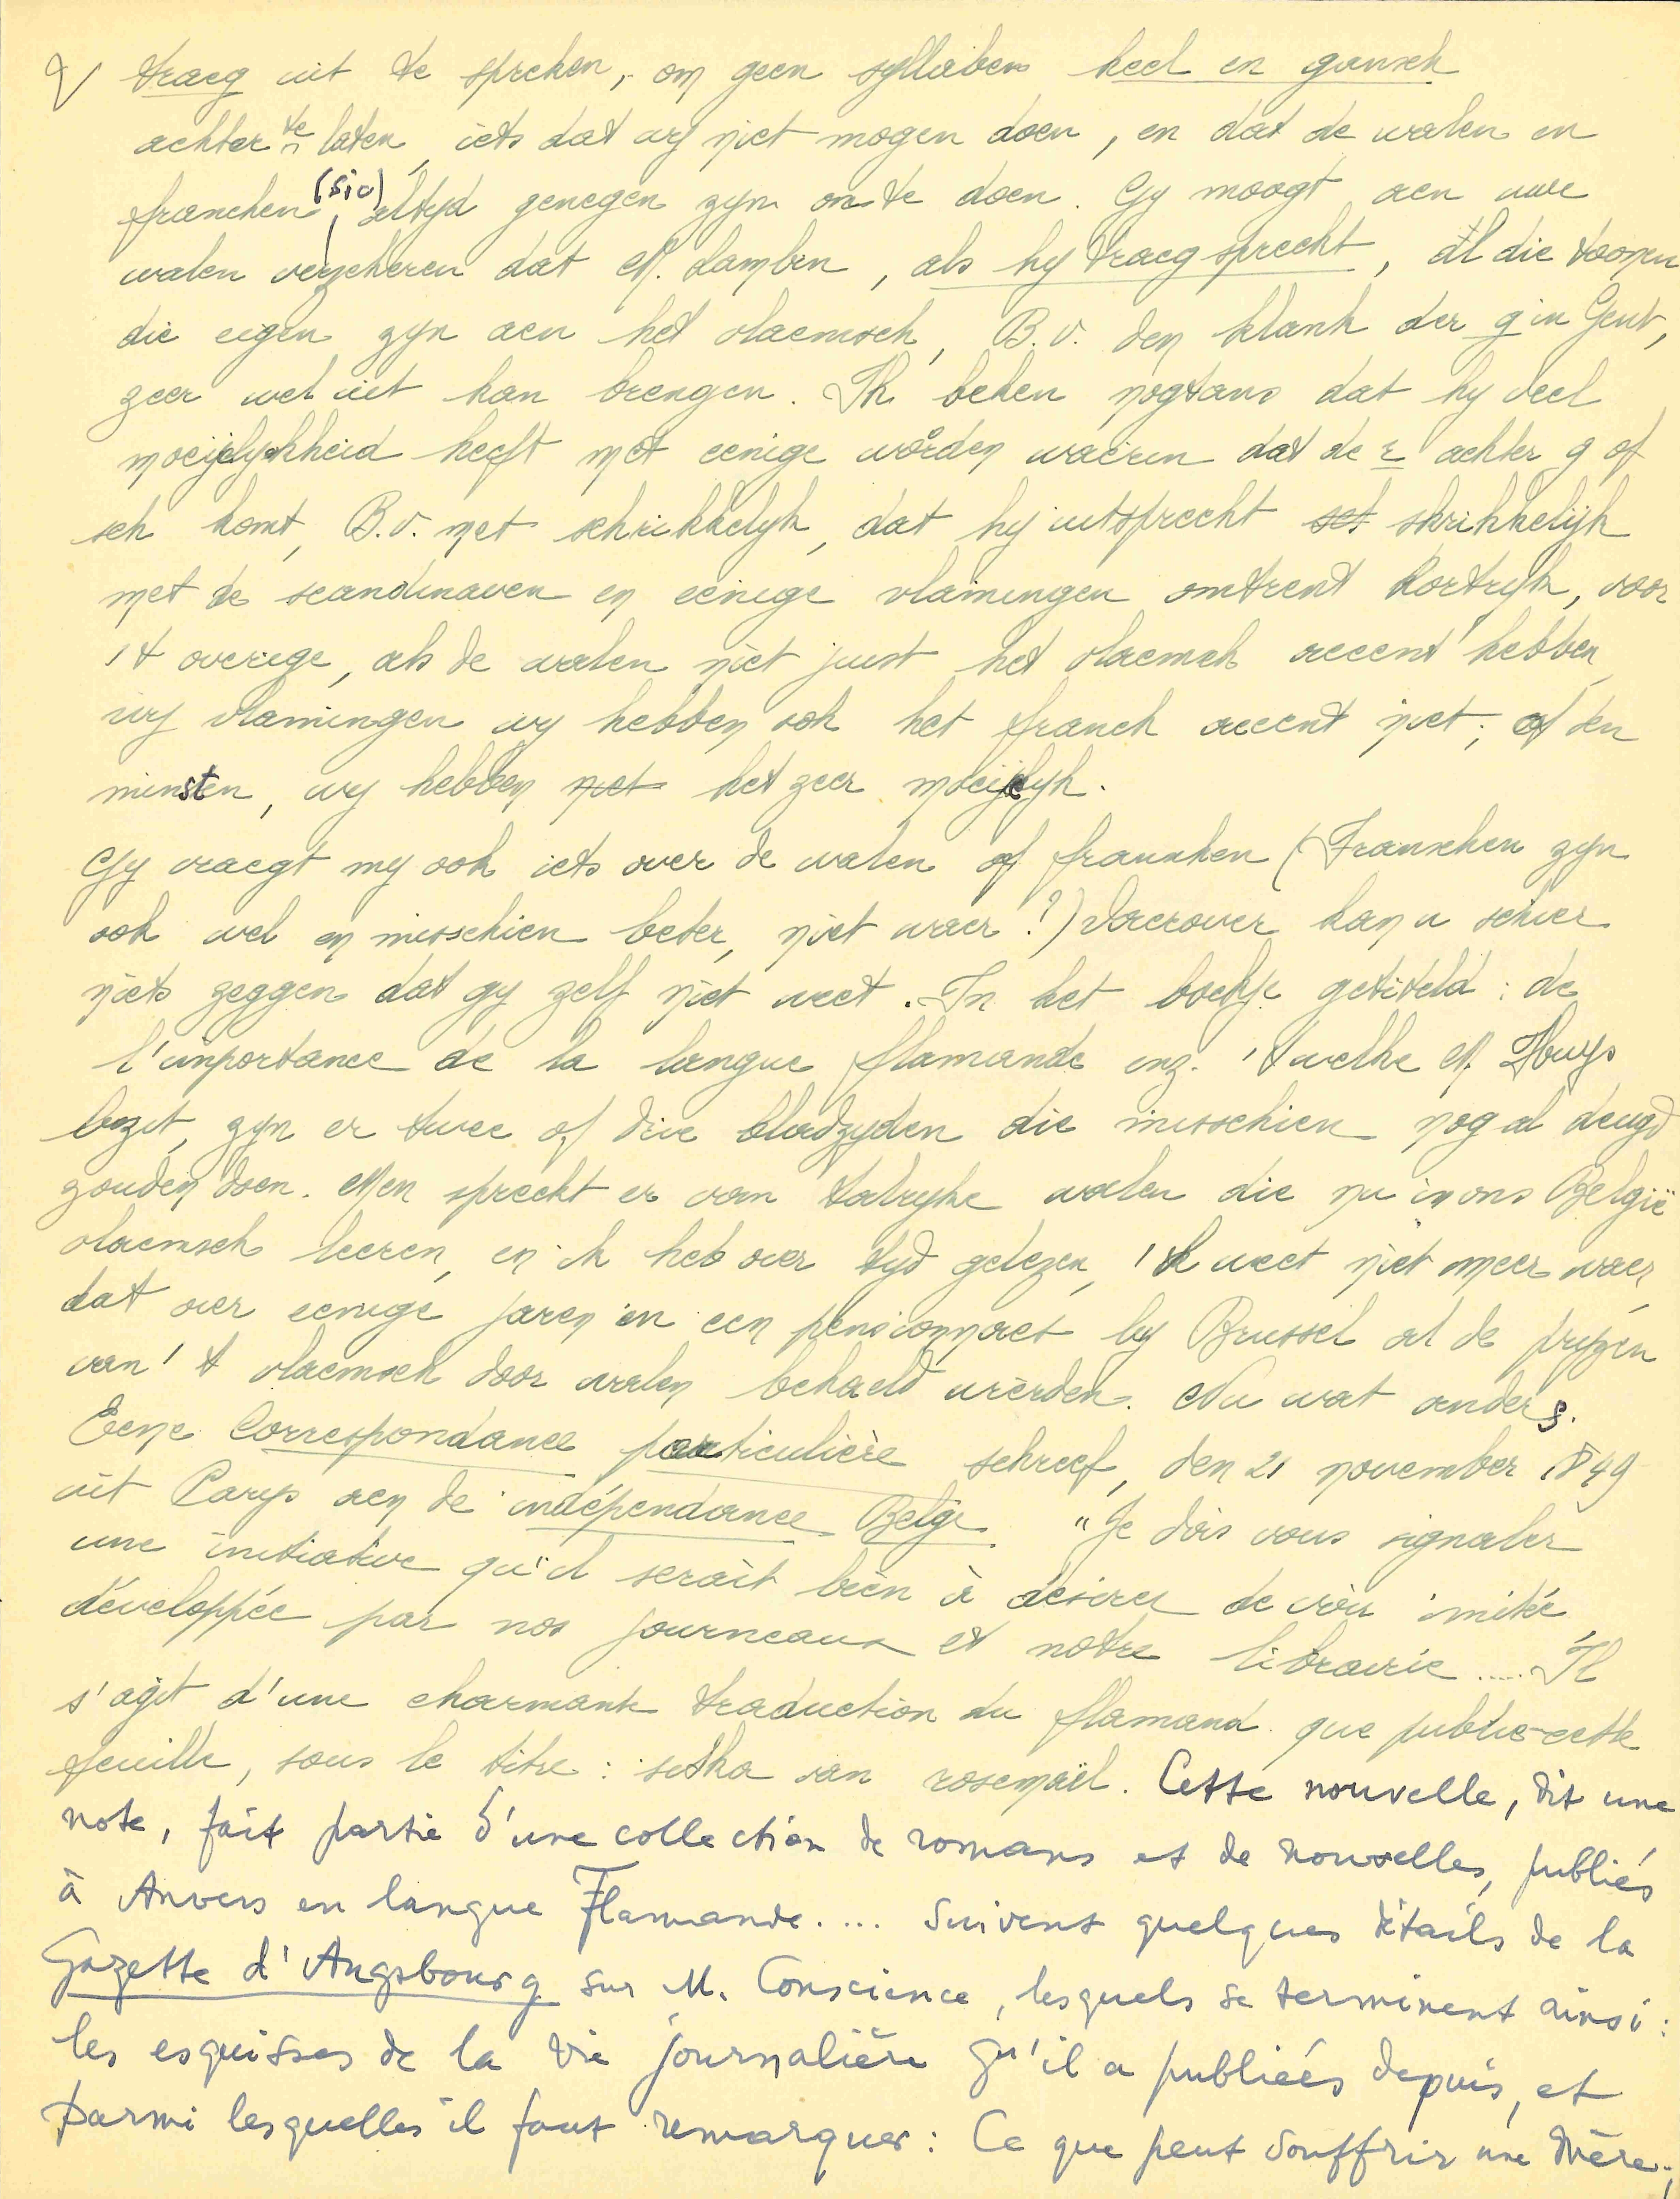 V traeg uit te spreken, om geen syllaben heel en gansch
achter te laten, iets dat wy niet mogen doen, en dat de walen en
franchen (sic), altyd genegen zyn om te doen. Gy moogt aen uwe
walen verzekeren dat M. Lambin, als hy traeg spreekt, al die toonen
die eigen zyn aen het vlaemsch, B.v. den klank der g in Gent,
zeer wel uit kan brengen. Ik beken nogtans dat hy veel
moeijelykheid heeft met eenige woorden waerin dat de r achter g of
sch komt, B.v. met schrikkelyk, dat hy uitspreekt sct skrikkelijk
met de scandinaven en eenige vlamingen omtrent Kortryk, voor
't overige, als de walen niet juist het vlaemsch accent hebben,
wy vlamingen wy hebben ook het fransch accent niet; of ten
minsten, wy hebben niet het zeer moeijelyk.
Gy vraegt my ook iets over de walen of franschen (Franschen zyn
ook wel en misschien beter, niet waer?) Daerover kan u schier
niets zeggen dat gy zelf niet weet. In het boekje getiteld: de
l'importance de la langue flamande enz. 't welke M. Huys
bezit, zyn er twee of drie bladzyden die misschien nog al deugd
zouden doen. Men spreekt er van talryke walen die nu in ons België
vlaemsch leeren, en ik heb over tyd gelezen, 'k weet niet meer waer,
dat over eenige jaren in een pensionnaet by Brussel al de pryzen
van 't vlaemsch door walen behaeld wierden. Nu wat anders.
Eene Correspondance particulière schreef, den 21 november 1849
uit Parys aen de indépendance Belge "Je dois vous signaler
une initiative qu'il serait bien à désirer de voir imitée,
développée par nos journeaux et notre librairie ..... Il
s'agit d'une charmante traduction du flamand que publie cette
feuille, sous le titre: siska van rosemaël. Cette nouvelle, dit une
note, fait partie d'une collection de romans et de nouvelles, publiés
à Anvers en langue Flamande.... Suivent quelques détails de la
Gazette d'Augsbourg sur M. Conscience, lesquels se terminent ainsi:
les esquisses de la vie journalière qu'il a publiées depuis, et
parmi lesquelles il faut remarquer: Ce que peut souffrir une Mère;